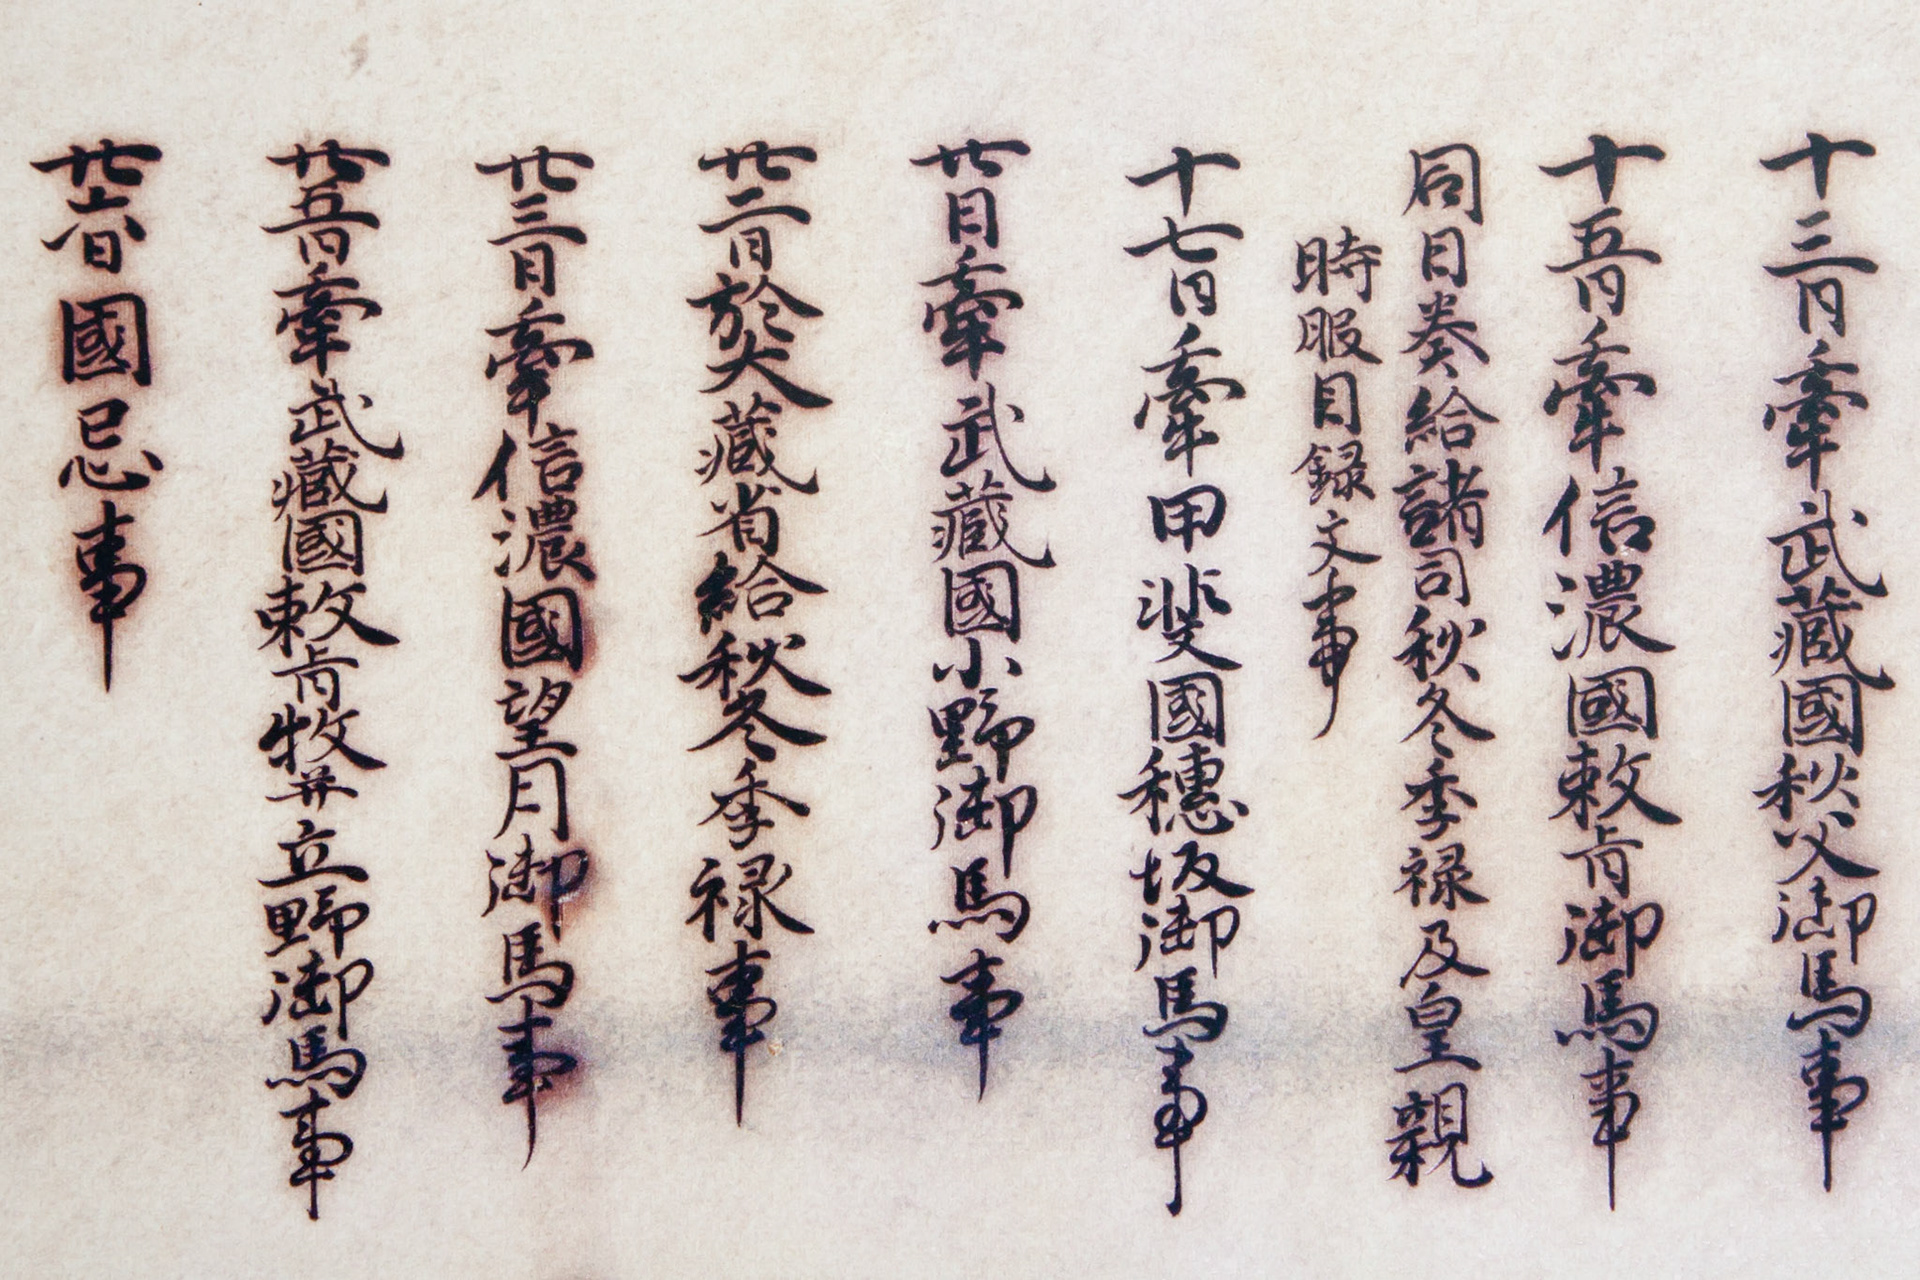 十三日牽武藏國秩父御馬事
十五日牽信濃國敕旨御馬事
同日奏給諸司秋冬季禄及皇親
時服目録文事
十七日牽甲斐國穗坂御馬事
廿日牽武藏國小野御馬事
廿二日於大藏省給秋冬季禄事
廿三日牽信濃國望月御馬事
廿五日牽武藏國敕旨牧并立野御馬事
廿六日國忌事